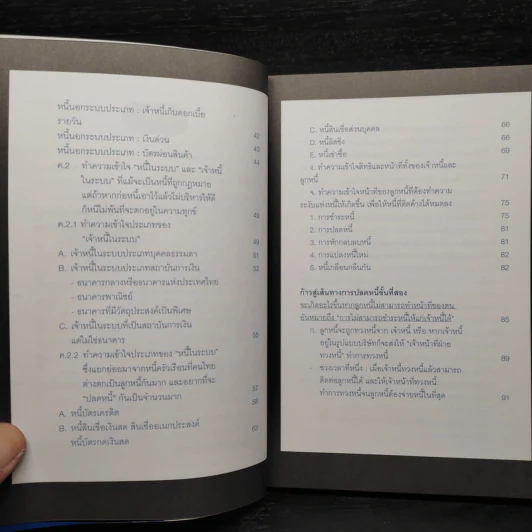 หนี้นอกระบบประเภท : เจ้าหนี้เก็บดอกเบี้ย
รายวัน 42
หนี้นอกระบบประเภท : เงินด่วน 43
หนี้นอกระบบประเภท : บัตรผ่อนสินค้า 44
ค.2 ทำความเข้าใจ "หนี้ในระบบ" และ "เจ้าหนี้
ในระบบ" ที่แม้จะเป็นหนี้ที่ถูกกฎหมาย
แต่ถ้าหากก่อหนี้เอาไว้แล้วไม่บริหารให้ดี
ก็หนีไม่พ้นที่จะตกอยู่ในความทุกข์ 48
ค.2.1 ทำความเข้าใจประเภทของ
"เจ้าหนี้ในระบบ" 49
A. เจ้าหนี้ในระบบประเภทบุคคลธรรมดา 51
B. เจ้าหนี้ในระบบประเภทสถาบันการเงิน 52
- ธนาคารกลางหรือธนาคารแห่งประเทศไทย
- ธนาคารพาณิชย์
- ธนาคารที่มีวัตถุประสงค์เป็นพิเศษ
C. เจ้าหนี้ในระบบที่เป็นสถาบันการเงิน
แต่ไม่ใช่ธนาคาร 55
ค.2.2 ทำความเข้าใจประเภทของ "หนี้ในระบบ"
ซึ่งแยกย่อยมาจากหนี้ครัวเรือนที่คนไทย
ต่างตกเป็นลูกหนี้กันมาก และอยากที่จะ
"ปลดหนี้" กันเป็นจำนวนมาก 57
A. หนี้บัตรเครดิต 58
B. หนี้สินเชื่อเงินสด สินเชื่ออเนกประสงค์
หนี้บัตรกดเงินสด 63
C. หนี้สินเชื่อส่วนบุคคล 66
D. หนี้ลีสซิ่ง 66
E. หนี้เช่าซื้อ 69
ง. ทำความเข้าใจสิทธิและหน้าที่ทั้งของเจ้าหนี้และ
ลูกหนี้ 71
จ. ทำความเข้าใจหน้าที่ของลูกหนี้ที่ต้องทำความ
ระงับแห่งหนี้ให้เกิดขึ้น เพื่อให้หนี้ที่ติดค้างได้หมดลง 75
1. การชำระหนี้ 75
2. การปลดหนี้ 81
3. การหักกลบลบหนี้ 81
4. การแปลงหนี้ใหม่ 82
5. หนี้เกลื่อนกลืนกัน 82
ก้าวสู่เส้นทางการปลดหนี้ขั้นที่สอง
จะเกิดอะไรขึ้นหากลูกหนี้ไม่สามารถทำหน้าที่ของตน
อันหมายถึง "การไม่สามารถชำระหนี้ให้แก่เจ้าหนี้ได้" 85
ก. ลูกหนี้จะถูกทวงหนี้จาก เจ้าหนี้ หรือ หากเจ้าหนี้
อยู่ในรูปแบบบริษัทก็จะส่งให้ "เจ้าหน้าที่ฝ่าย
ทวงหนี้" ทำการทวงหนี้ 89
- ช่วงเวลาที่หนึ่ง : เมื่อเจ้าหนี้ทวงหนี้แล้วสามารถ
ติดต่อลูกหนี้ได้ และให้เจ้าหน้าที่ทวงหนี้
ทำการทวงหนี้จนลูกหนี้ต้องจ่ายหนี้ในที่สุด 91